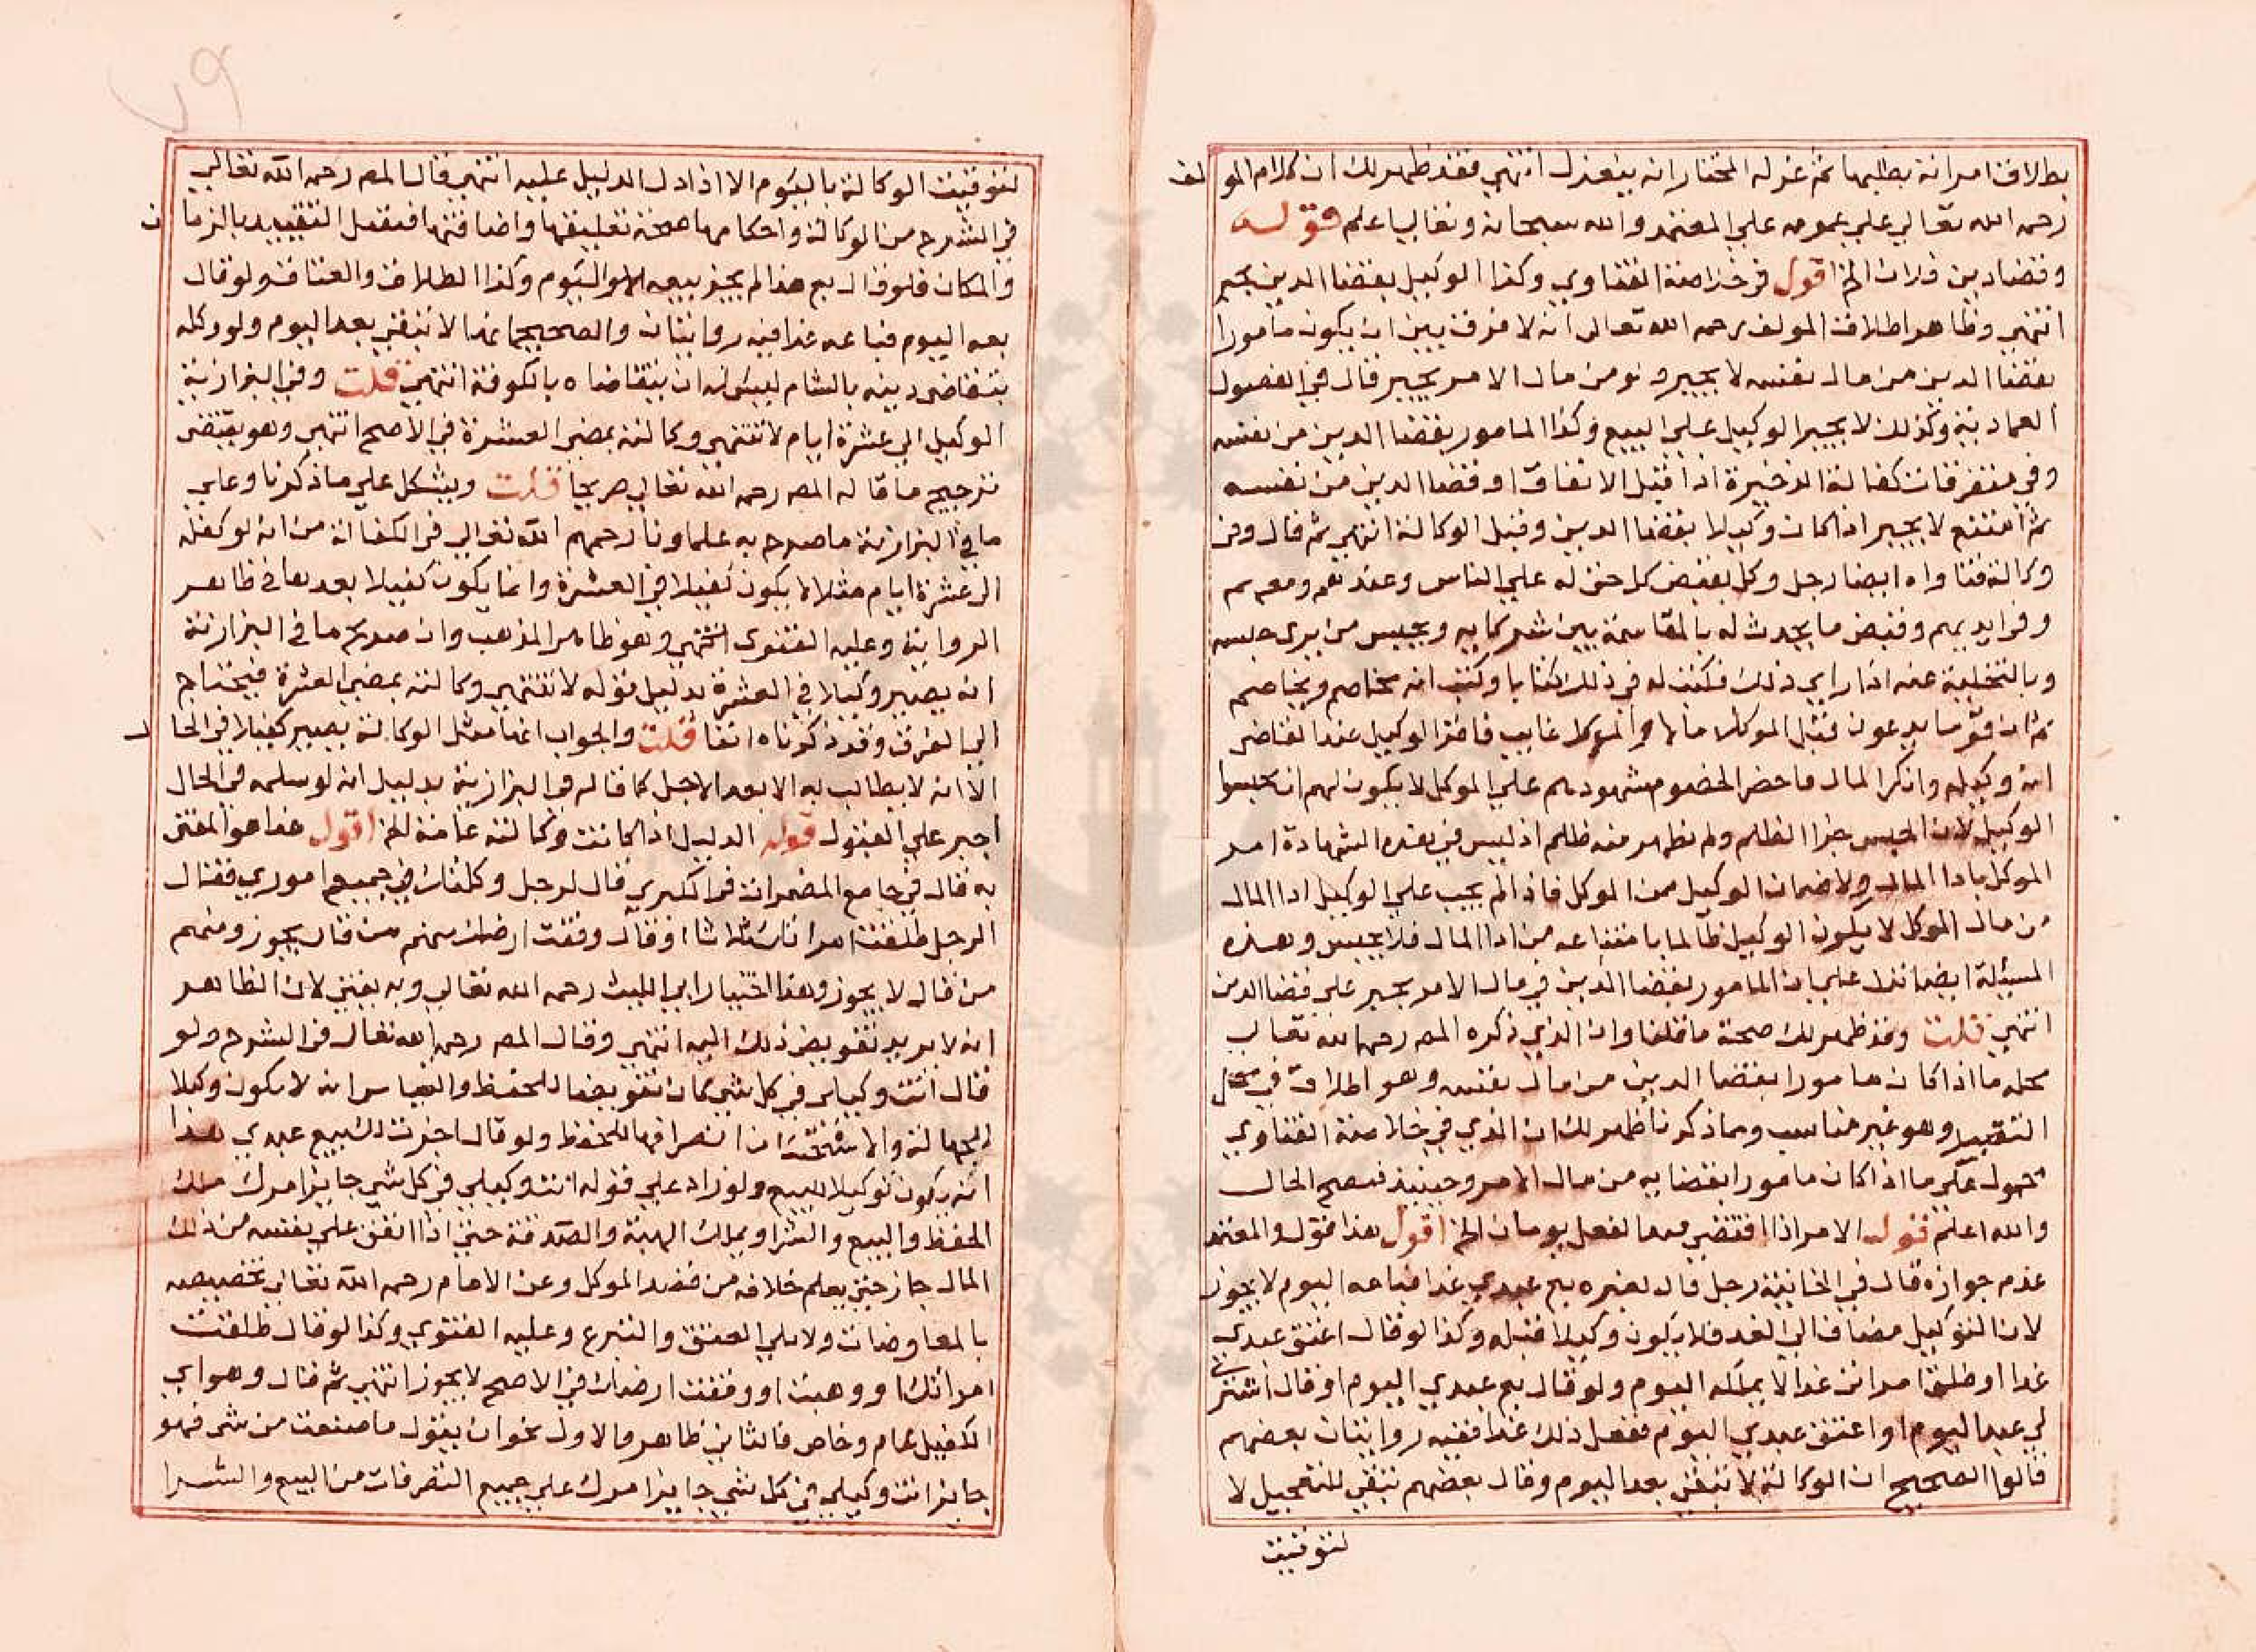 بطلاق امرانه بطلبها ثم عزله المختار انه ينعزل انتهي فقد ظهر لك ان كلام المولف
رحمه الله تعالي علي عمومه علي المعتمد والله سبحانه وتعالي اعلم قوله
وقضا دين فلان الخ اقول في خزانة الفتاوي وكذا الوكيل بقضا الدين يجبر
انتهي وظاهر اطلاق المولف رحمه الله تعالي انه لا فرق بين ان يكون مامورا
بقضا الدين من مال نفسه لا يجبر ومن مال الامر يجبر قال في الفصول
العمادية وكذلك لا يجبر الوكيل علي البيع وكذا المامور بقضا الدين من نفسه
وفي متفرقات كفالة الذخيرة اذا قبل الانفاق او قضا الدين من نفسه
ثم امتنع لا يجبر اذا كان وكيلا بقضا الدين وقبل الوكالة انتهي ثم قال وفي
وكالة فتاواه ايضا رجل وكل بقبض كل حق له علي الناس وعندهم ومعهم
وفي ايديهم وقبض ما يحدث له بالمقاسمة بين شركايه ويحبس من يري حبسه
وبالتخلية عنه اذا راي ذلك فكتب له في ذلك كتابا وكتب انه يخاصم ويخاصم
ثم ان قوما يدعون قبل الموكل مالا والموكل غايب فاقر الوكيل عند القاضي
انه وكيله وانكر المال فاحضر الخصوم شهودهم علي الموكل لا يكون لهم ان يحبسوا
الوكيل لان الحبس جزا الظلم ولم يظهر منه ظلم اذ ليس في هذه الشهادة امر
الموكل بادا المال ولا ضمان الوكيل من الموكل فاذا لم يجب علي الوكيل ادا المال
من مال الموكل لا يكون الوكيل ظالما بامتناعه من ادا المال فلا يحبس وهذه
المسيلة ايضا تدل علي ان المامور بقضا الدين في مال الامر يجبر علي قضا الدين
انتهي قلت وقد ظهر لك صحة ما قلنا وان الذي ذكره المص رحمه الله تعالي
محله ما اذا كان مامورا بقضا الدين من مال نفسه وهو اطلاق في محل
التقييد وهو غير مناسب ومما ذكرنا ظهر لك ان الذي في خلاصة الفتاوي
محمول علي ما اذا كان مامورا بقضايه من مال الامر وحينيذ فيصح الحال
والله اعلم قوله الامر اذا اقتضي فيما لفعل يومان الخ اقول هذا قول والمعتمد
عدم جوازه قال في الخانية رجل قال لغيره بع عبدي غدا فباعه اليوم لا يجوز
لان التوكيل مضاف الي الغد فلا يكون وكيلا قبله وكذا لو قال اعتق عبدي
غدا او طلق امراتي غدا لا يملكه اليوم ولو قال بع عبدي اليوم او قال اشتري
لي عبدا اليوم او اعتق عبدي اليوم ففعل ذلك غدا ففيه روايتان بعضهم
قالوا الصحيح ان الوكالة لا تبقي بعد اليوم وقال بعضهم تبقي للتعجيل لا
لتوقيت
لتوقيت الوكالة باليوم الا اذا دل الدليل عليه انتهي قال المص رحمه الله تعالي
في الشرح من الوكالة واحكامها صحة تعليقها واضافتها فتقبل التقييد بالزمان
والمكان فلو قال بع هذا لم يجز بيعه الا اليوم وكذا الطلاق والعتاق ولو قال
بعه اليوم فباعه غدا فيه روايتان والصحيح انها لا تبقي بعد اليوم ولو وكله
بتقاضي دينه بالشام ليس له ان يتقاضاه بالكوفة انتهي قلت وفي البزازية
الوكيل الي عشرة ايام لا تنتهي وكالته بمضي العشرة في الاصح انتهي وهو يقتضي
ترجيح ما قاله المص رحمه الله تعالي صريحا قلت ويشكل علي ما ذكرنا وعلي
ما في البزازية ما صرح به علماونا رحمهم الله تعالي في الكفالة من انه لو كفله
الي عشرة ايام مثلا لا يكون كفيلا في العشرة وانما يكون كفيلا بعدها في ظاهر
الرواية وعليه الفتوي انتهي وهو ظاهر المذهب وان صريح ما في البزازية
انه يصير وكيلا في العشرة بدليل قوله لا تنتهي وكالته بمضي العشرة فيحتاج
الي الفرق وقد ذكرناه انفا قلت والجواب انها مثل الوكالة يصير كفيلا في الحال
الا انه لا يطالب به الا بعد الاجل كما قاله في البزازية بدليل انه لو سلمه في الحال
اجبر علي القبول قوله الدليل اذا كانت وكالته عامة الخ اقول هذا هو المفتي
به قال في جامع المضمرات في الكبري قال لرجل وكلتك في جميع اموري فقال
الرجل طلقت امراتك ثلاثا او قال وقفت ارضك منهم من قال يجوز ومنهم
من قال لا يجوز وهذا اختيار ابي الليث رحمه الله تعالي وبه يفتي لان الظاهر
انه لا يريد تفويض ذلك اليه انتهي وقال المص رحمه الله تعالي في الشرح ولو
قال انت وكيلي في كل شي كان تفويضا للحفظ والقياس انه لا يكون وكيلا
للجهالة والاستحسان انصرافها للحفظ ولو قال اجزت لك بيع عبدي هذا
انه يكون توكيلا للبيع ولو زاد علي قوله انت وكيلي في كل شي جايز امرك ملك
الحفظ والبيع والشرا ويملك الهبة والصدقة حتي اذا انفق علي نفسه من ذلك
المال جاز حتي يعلم خلافه من قصد الموكل وعن الامام رحمه الله تعالي تخصيصه
بالمعاوضات ولا يلي العتق والتبرع وعليه الفتوي وكذا لو قال طلقت
امراتك او وهبت او وقفت ارضك في الاصح لا يجوز انتهي ثم قال وهو اي
الكفيل عام وخاص فالثاني ظاهر والاول نحو ان يقول ما صنعت من شي فهو
جايز انت وكيلي في كل شي جايز امرك علي جميع التصرفات من البيع والشرا